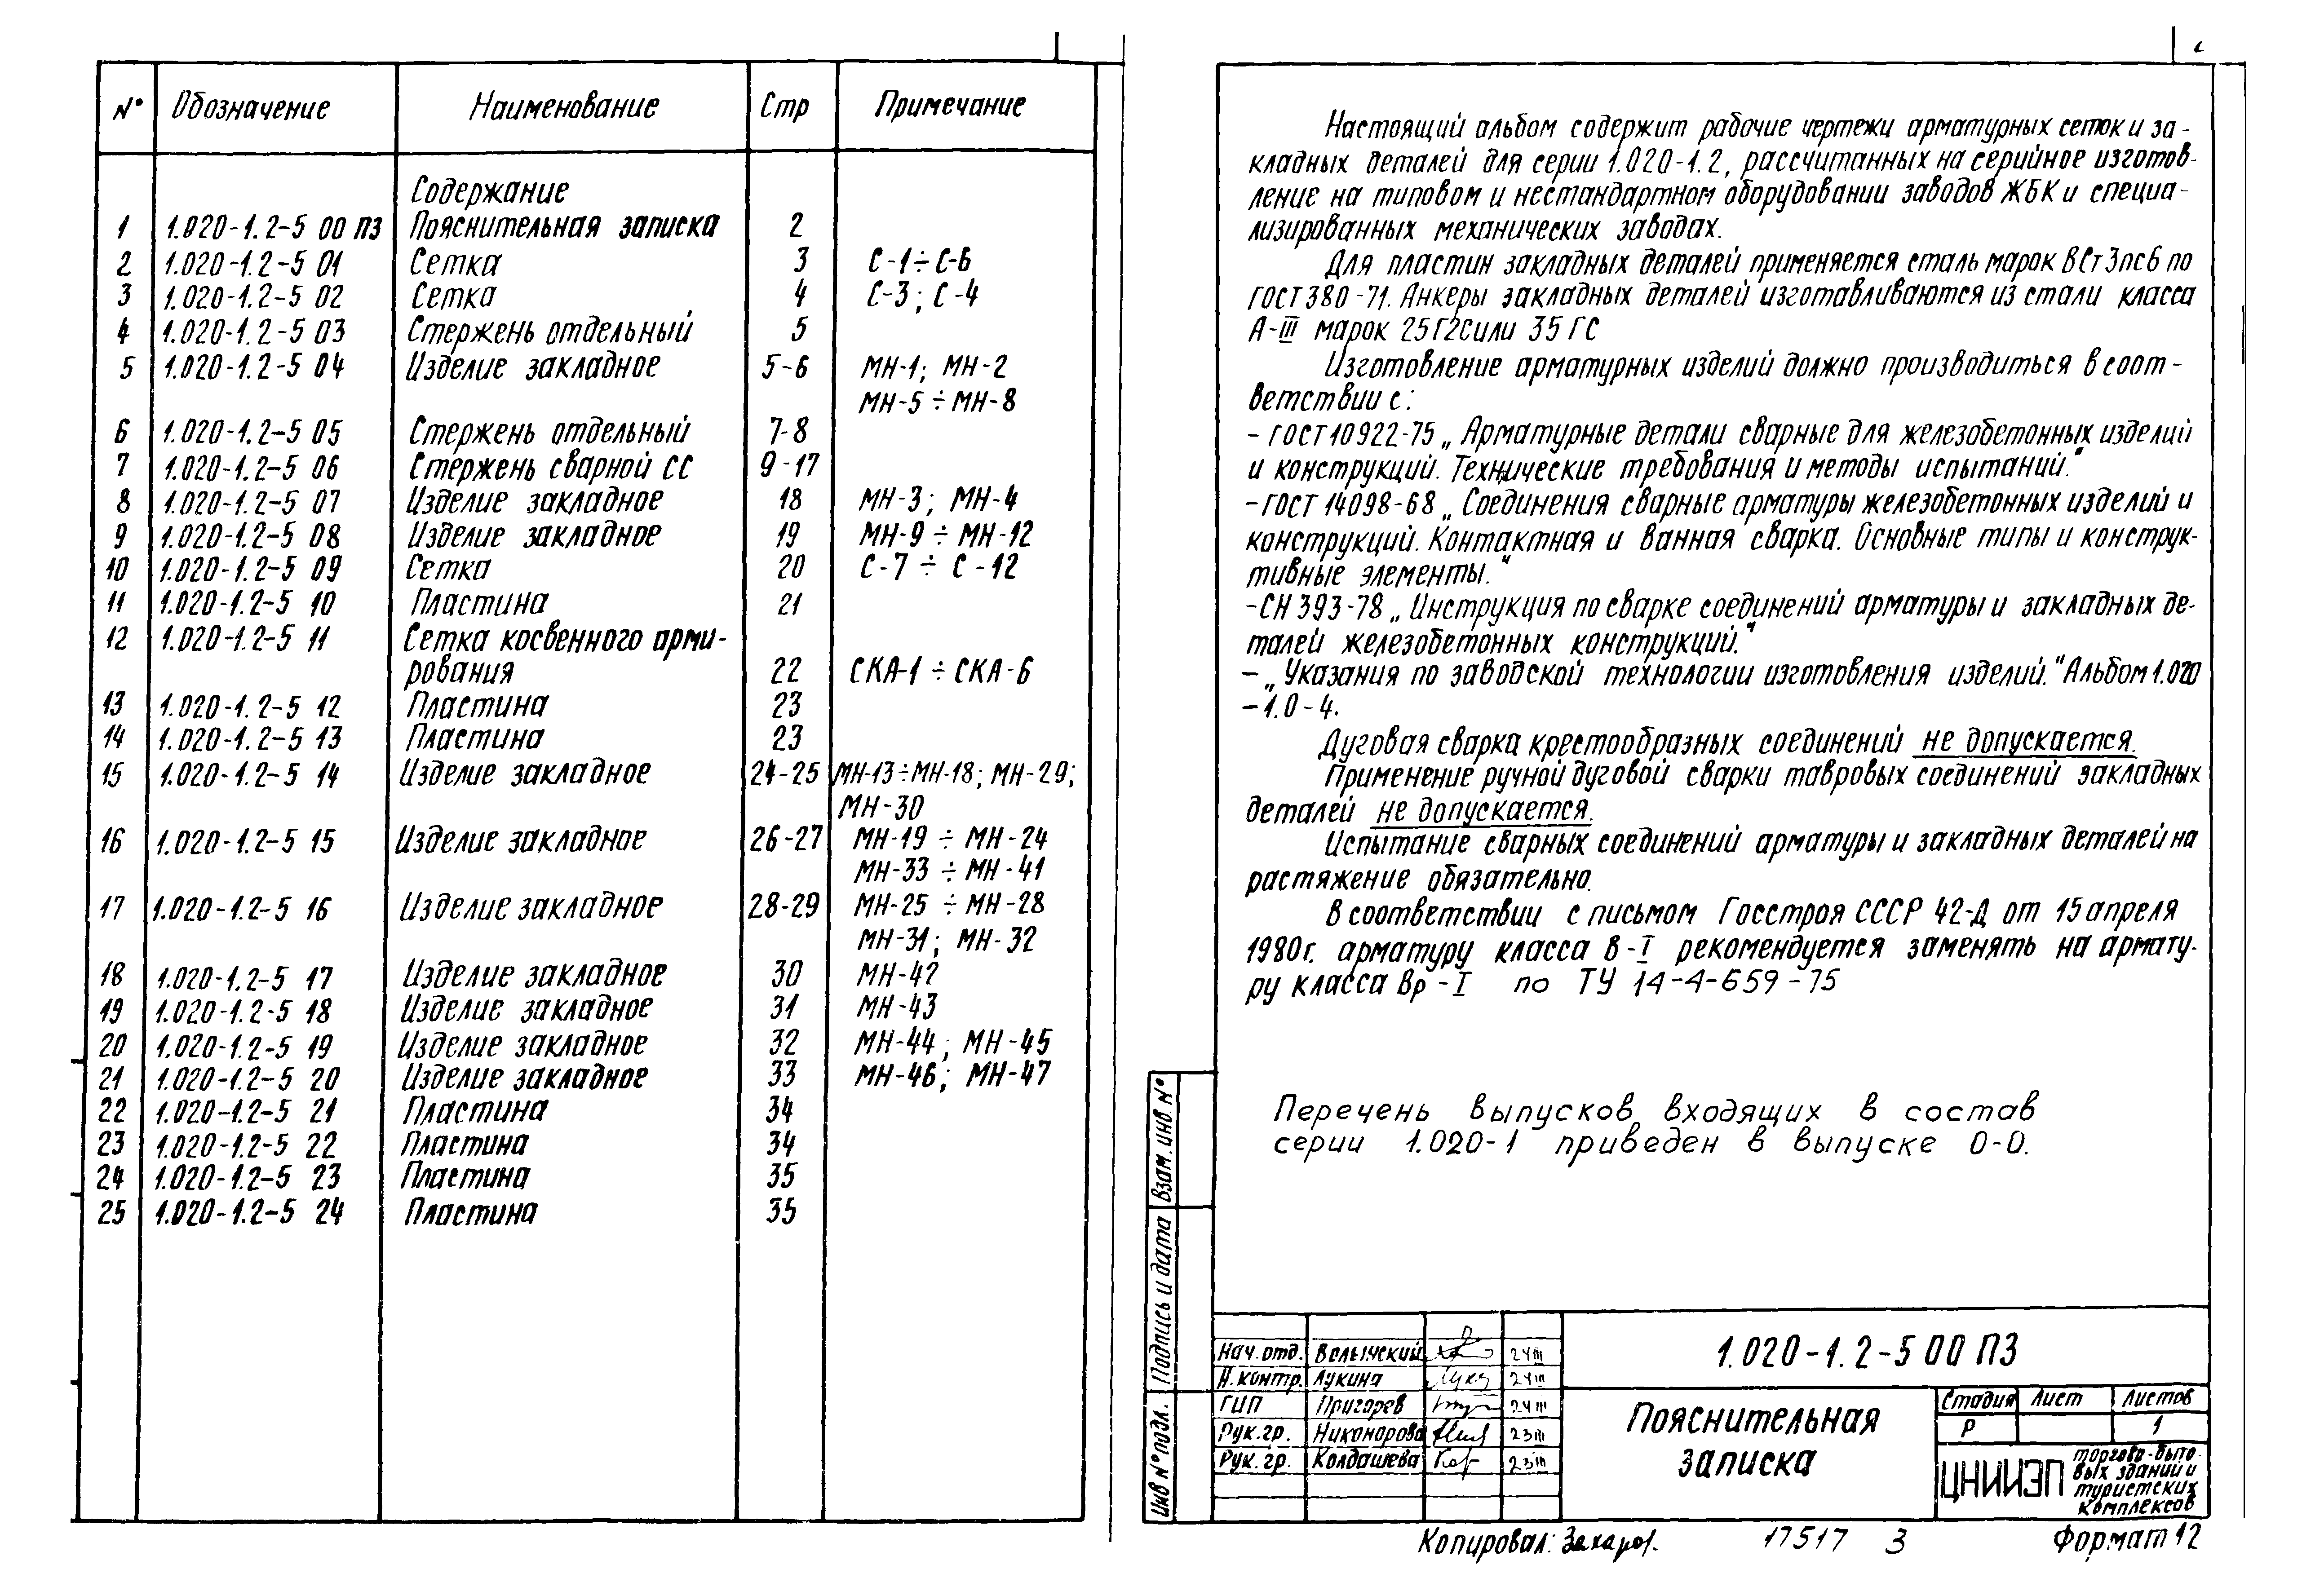 № Обозначение Наименование Стр Примечание
Содержание
1 1.020-1.2-5 00 ПЗ Пояснительная записка 2
2 1.020-1.2-5 01 Сетка 3 С-1÷С-6
3 1.020-1.2-5 02 Сетка 4 С-3; С-4
4 1.020-1.2-5 03 Стержень отдельный 5
5 1.020-1.2-5 04 Изделие закладное 5-6 МН-1; МН-2
МН-5÷МН-8
6 1.020-1.2-5 05 Стержень отдельный 7-8
7 1.020-1.2-5 06 Стержень сварной СС 9-17
8 1.020-1.2-5 07 Изделие закладное 18 МН-3; МН-4
9 1.020-1.2-5 08 Изделие закладное 19 МН-9÷МН-12
10 1.020-1.2-5 09 Сетка 20 С-7÷С-12
11 1.020-1.2-5 10 Пластина 21
12 1.020-1.2-5 11 Сетка косвенного арми-
рования 22 СКА-1÷СКА-6
13 1.020-1.2-5 12 Пластина 23
14 1.020-1.2-5 13 Пластина 23
15 1.020-1.2-5 14 Изделие закладное 24-25 МН-13÷МН-18; МН-29;
МН-30
16 1.020-1.2-5 15 Изделие закладное 26-27 МН-19÷МН-24
МН-33÷МН-41
17 1.020-1.2-5 16 Изделие закладное 28-29 МН-25÷МН-28
МН-31; МН-32
18 1.020-1.2-5 17 Изделие закладное 30 МН-42
19 1.020-1.2-5 18 Изделие закладное 31 МН-43
20 1.020-1.2-5 19 Изделие закладное 32 МН-44; МН-45
21 1.020-1.2-5 20 Изделие закладное 33 МН-46; МН-47
22 1.020-1.2-5 21 Пластина 34
23 1.020-1.2-5 22 Пластина 34
24 1.020-1.2-5 23 Пластина 35
25 1.020-1.2-5 24 Пластина 35
Настоящий альбом содержит рабочие чертежи арматурных сеток и за-
кладных деталей для серии 1.020-1.2, рассчитанных на серийное изготов-
ление на типовом и нестандартном оборудовании заводов ЖБК и специа-
лизированных механических заводах.
Для пластин закладных деталей применяется сталь марок ВСт3пс6 по
ГОСТ 380-71. Анкеры закладных деталей изготавливаются из стали класса
А-III марок 25Г2С или 35ГС
Изготовление арматурных изделий должно производиться в соот-
ветствии с:
- ГОСТ 10922-75 „Арматурные детали сварные для железобетонных изделий
и конструкций. Технические требования и методы испытаний."
- ГОСТ 14098-68 „Соединения сварные арматуры железобетонных изделий и
конструкций. Контактная и ванная сварка. Основные типы и конструк-
тивные элементы."
- СН 393-78 „Инструкция по сварке соединений арматуры и закладных де-
талей железобетонных конструкций."
- „Указания по заводской технологии изготовления изделий." Альбом 1.020
-1.0-4.
Дуговая сварка крестообразных соединений не допускается.
Применение ручной дуговой сварки тавровых соединений закладных
деталей не допускается.
Испытание сварных соединений арматуры и закладных деталей на
растяжение обязательно.
В соответствии с письмом Госстроя СССР 42-Д от 15 апреля
1980г. арматуру класса В-I рекомендуется заменять на армату-
ру класса Вр-I по ТУ 14-4-659-75
Перечень выпусков, входящих в состав
серии 1.020-1 приведен в выпуске 0-0.
Взам. инв. №
Подпись и дата
Инв № подл.
Нач. отд. Волынский 24 III
Н. контр. Лукина 24 III
ГИП Пригорев 24 III
Рук. гр. Никонорова 23 III
Рук. гр. Колдашева 23 III
1.020-1.2-5 00 ПЗ
Пояснительная
записка
Стадия Лист Листов
Р 1
ЦНИИЭП
торгово-быто-
вых зданий и
туристских
комплексов
Копировал: Захаров. 17517 3 Формат 12